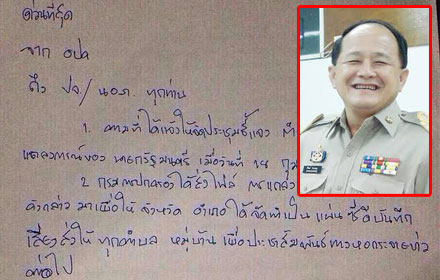 ด่วนที่สุด
จาก อปค
ถึง ปจ./นอภ. ทุกท่าน
1. ตามที่ได้แจ้งให้จัดประชุมชี้แจง
แถลงการณ์ของ นายกรัฐมนตรี เมื่อวันที่ 18 กุม
2. กรมการปกครองได้ส่งไฟล์ การแถลง
ดังกล่าว มาเพื่อให้ จังหวัด อำเภอ ได้จัดทำเป็น แผ่น ซีดีบันทึก
เสียงส่งให้ ทุกตำบล หมู่บ้าน เพื่อประชาสัมพันธ์ทางหอกระจายข่าว
ต่อไป